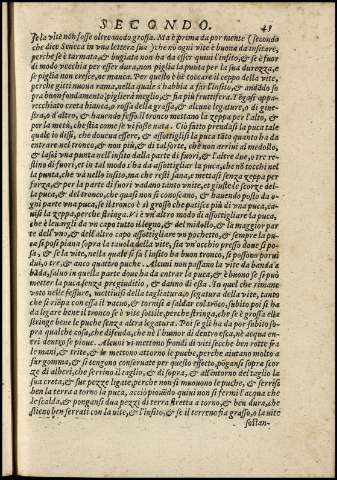 SECONDO. 43
se la vite non fosse oltre modo grossa. Ma è prima da por mente (secondo
che dice Seneca in una lettera sua) che nō ogni vite è buona da insitare,
perche se è tarmata, & bugiata non ha da esser quivi l'insito, & se è fuor
di modo vecchia per esser dura, non piglia la punta per la sua durezza, e
se piglia non cresce, ne manca. Per questo è bē toccare il ceppo della vite,
perche gitti nuova rama, nella quale s'habbia a far l'insito, & andādo so
pra buon fondamento piglierà meglio, & fia più fruttifera. Togasi appa-
recchiato creta bianca, o rossa della grossa, & alcune legature, o di gine-
stra, o d'altro, & havendo fesso il tronco mettano la zeppa per l'alto, &
per la metà, che stia come se vi fosse nata. Ciò fatto prendasi la puca tale
quale io dissi, che dovea essere, & assottiglisi la puca tāto quāto ha da
entrare nel tronco, & non più, & di tal sorte, che non arrivi al medollo,
& lassi una punta nell'insito dalla parte di fuori, & l'altre due, o tre re-
stino di fuori, et in tal modo s'ha da assottigliar la puca, che nō tocchi nel
la punta, che và nello insito, ma che resti sana, e mettasi senza zeppa per
forza, & per la parte di fuori vadano tanto unite, et giuste le scorze del-
la puca, & del tronco, che quasi non si conoscano, & havendo posto da o-
gni parte una puca, se il tronco è sì grosso che patisce più di una puca, ca-
visi la zeppa, perche stringa. Vi è un'altro modo di assottigliare la puca,
che è lo ungli da un capo tutto il legno, & del midollo, & la maggior par
te dell'uno, & dall'altro capo assottigliare un pochetto, & sempre la pu-
ca si posi piana sopra la tavola della vite, sia un'occhio presso dove si po-
sa, & se la vite, nella quale si fa l'insito ha buon tronco, si possono porvi
due, o tre, & anco quattro puche. Alcuni non passano la vite da banda a
bāda, salvo in questa parte dove ha da entrar la puca, & buono se si può
metter la puca senza pregiuditio, & danno di essa. In quel che rimane
voto nelle fessure, mettavisi della tagliatura, o segatura della vite, tanto
che sia ripā con essa il vacuo, & tornisi a saldar col arbore, subito poi si ha
da legare bene il tronco se è vite sottile, perche stringa, che se è grossa ella
stringe bene le puche senza altra legatura. Poi se gli ha da por subito so-
pra qualche cosa, che difenda, che nè l'humor di dentro esca, nè acqua en-
tri dentro se piove. Alcuni vi mettono frondi di viti secche ben rotte fra
le mani, & trite, & le mettono attorno le puche, perche aiutano molto a
far gomma, & si tengono conservate per questo effetto, pōgansi sopra scor
ze di alberi, che serrino il taglio, & di sopra, & all'intorno del taglio la
sua creta, & sue pezze ligate, perche non si muovono le puche, & serrisi
ben la terra a torno la puca, acciò piovēdo quivi non si fermi l'acqua che
le scalda, & ponganvi due pezzi di terra stretta a torno, & ben dura, che
stieno ben serrati con la vite, & l'insito, & se il terreno fia grasso, o la vite
sostan-